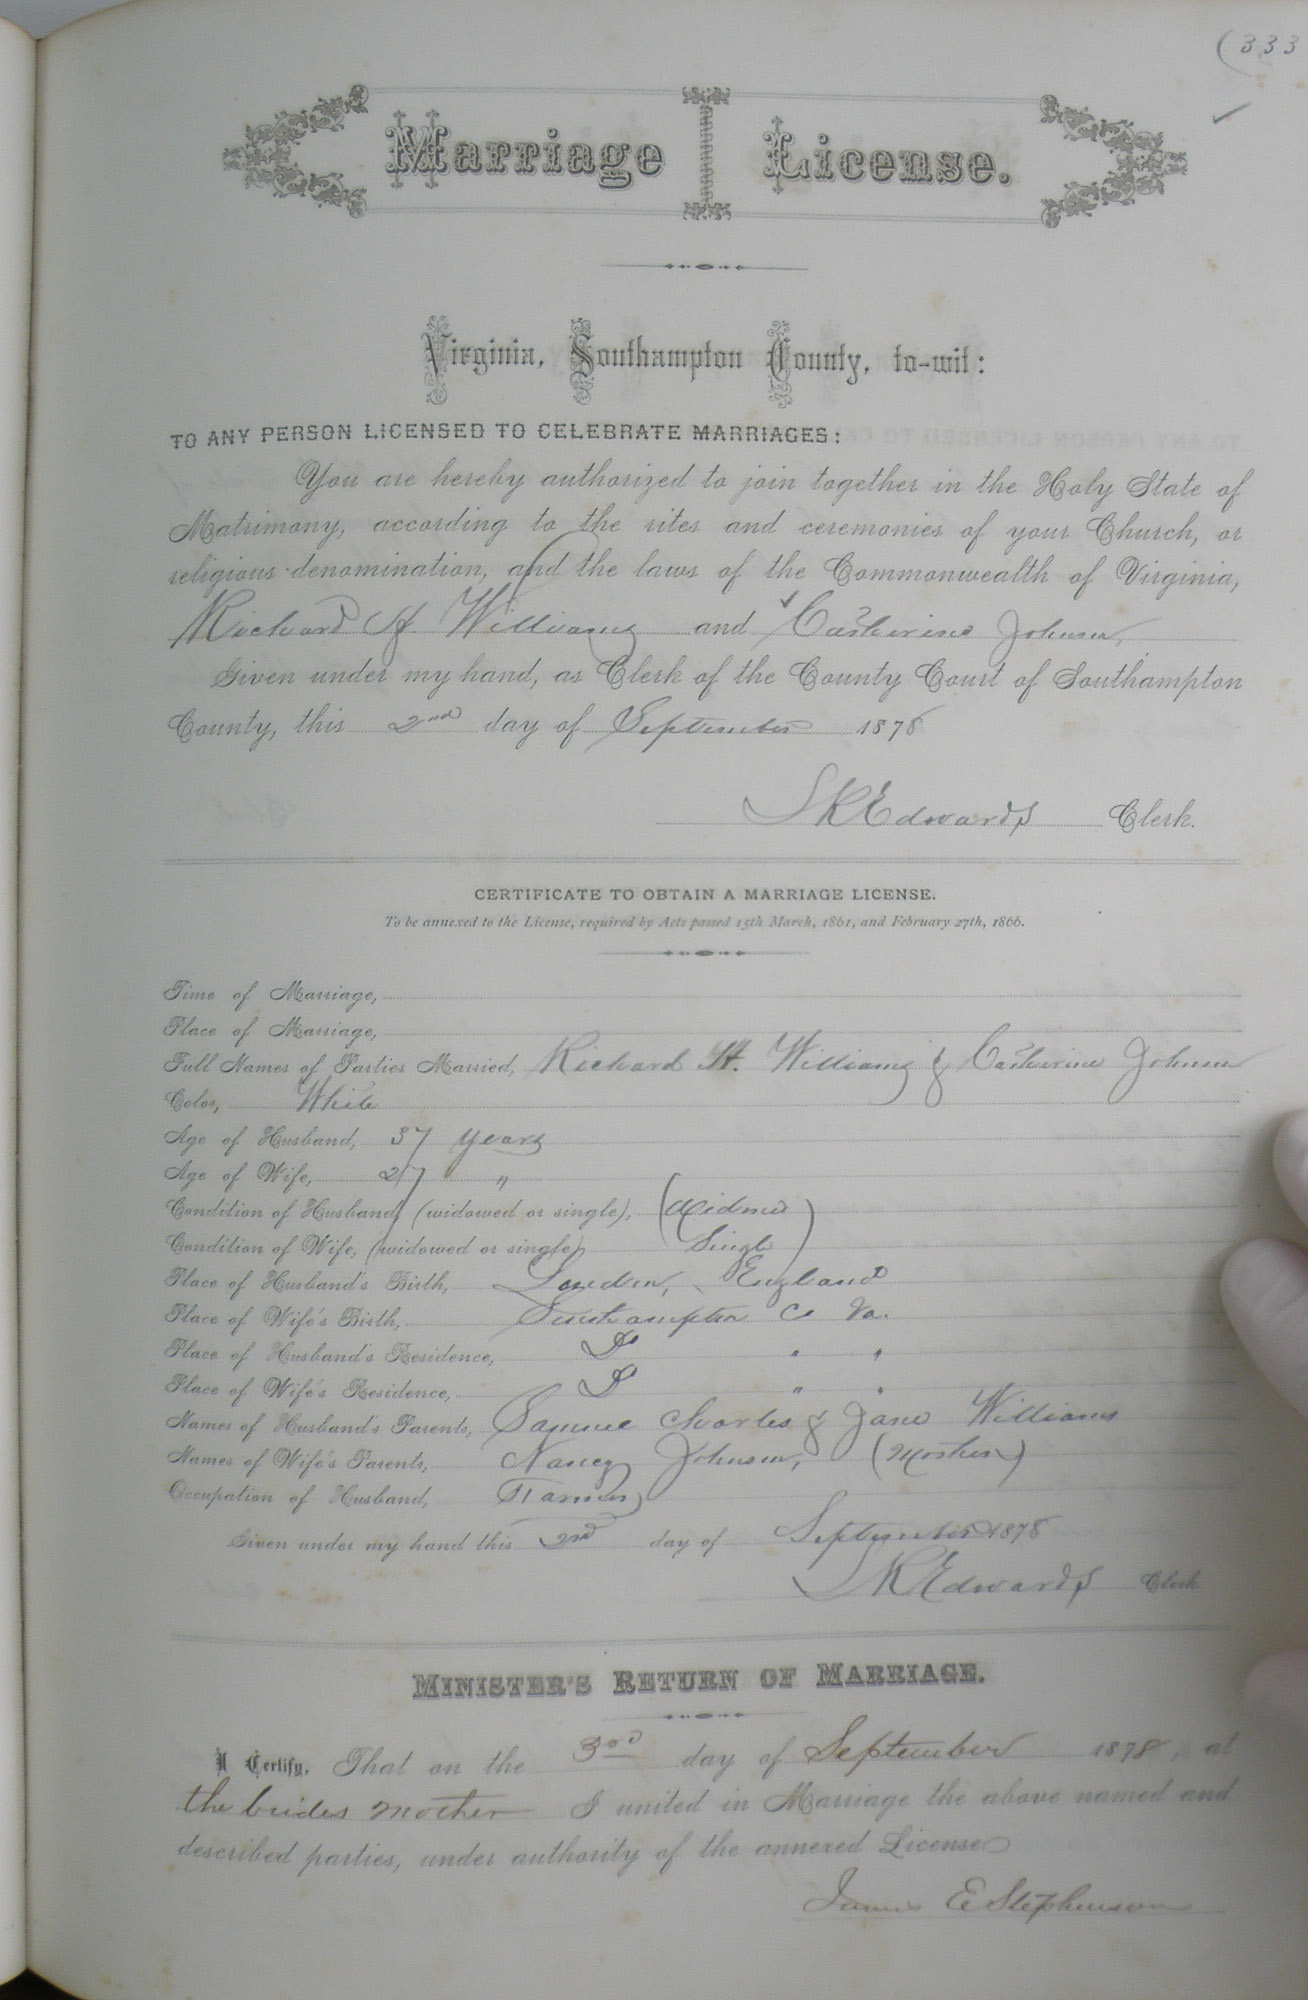 (333
Marriage License.
Virginia, Southampton County, to-wit:
TO ANY PERSON LICENSED TO CELEBRATE MARRIAGES:
You are hereby authorized to join together in the Holy State of
Matrimony, according to the rites and ceremonies of your Church, or
religious denomination, and the laws of the Commonwealth of Virginia,
Richard H. Williams and Catherine Johnson,
Given under my hand, as Clerk of the County Court of Southampton
County, this 2nd day of September 1878
L R Edwards Clerk.
CERTIFICATE TO OBTAIN A MARRIAGE LICENSE.
To be annexed to the License, required by Acts passed 15th March, 1861, and February 27th, 1866.
Time of Marriage,
Place of Marriage,
Full Names of Parties Married, Richard H. Williams & Catherine Johnson
Color, White
Age of Husband, 37 years
Age of Wife, 27 "
Condition of Husband, (widowed or single), (Widowed
Condition of Wife, (widowed or single) Single)
Place of Husband's Birth, London, England
Place of Wife's Birth, Southampton Co Va.
Place of Husband's Residence, Do " "
Place of Wife's Residence, Do " "
Names of Husband's Parents, Samuel Charles & Jane Williams
Names of Wife's Parents, Nancy Johnson, (Mother)
Occupation of Husband, Farmer
Given under my hand this 2nd day of September 1878
L R Edwards Clerk
MINISTER'S RETURN OF MARRIAGE.
I Certify, That on the 3rd day of September 1878, at
the brides mother I united in Marriage the above named and
described parties, under authority of the annexed License
James E Stephenson